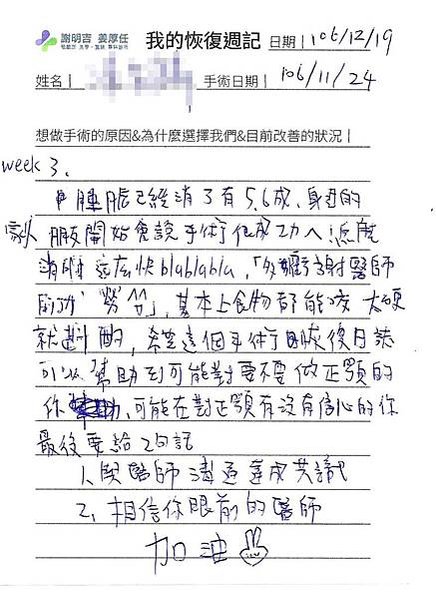 謝明吉 姜厚任
我的恢復週記 日期 | 106/12/19
姓名 | 手術日期 | 106/11/24
想做手術的原因&為什麼選擇我們&目前改善的狀況 |
week 3.
腫脹已經消了有5.6成,身邊的
朋友開始會說手術很成功ㄟ!怎麼
消腫這麼快blablabla,「多虧謝醫師
,基本上食物都能咬 太硬
就 酸,希望這個手術恢復後日誌
可以幫助到可能對要不要做正顎的
你,可能在對正顎有沒有信心的你
最後要給2句話
1.與醫師溝通達成共識
2.相信你眼前的醫師
加油